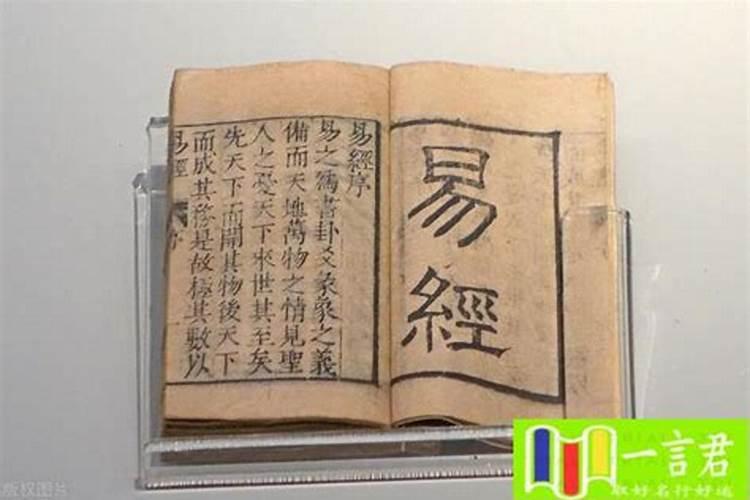 易經
易經序
易之爲書卦爻彖象之義
備而天地萬物之情見聖
人之憂天下來世其至矣
先天下而開其物後天下
而成其務是故極其數以
易經
序
一言君
取好名行好运
版权图片